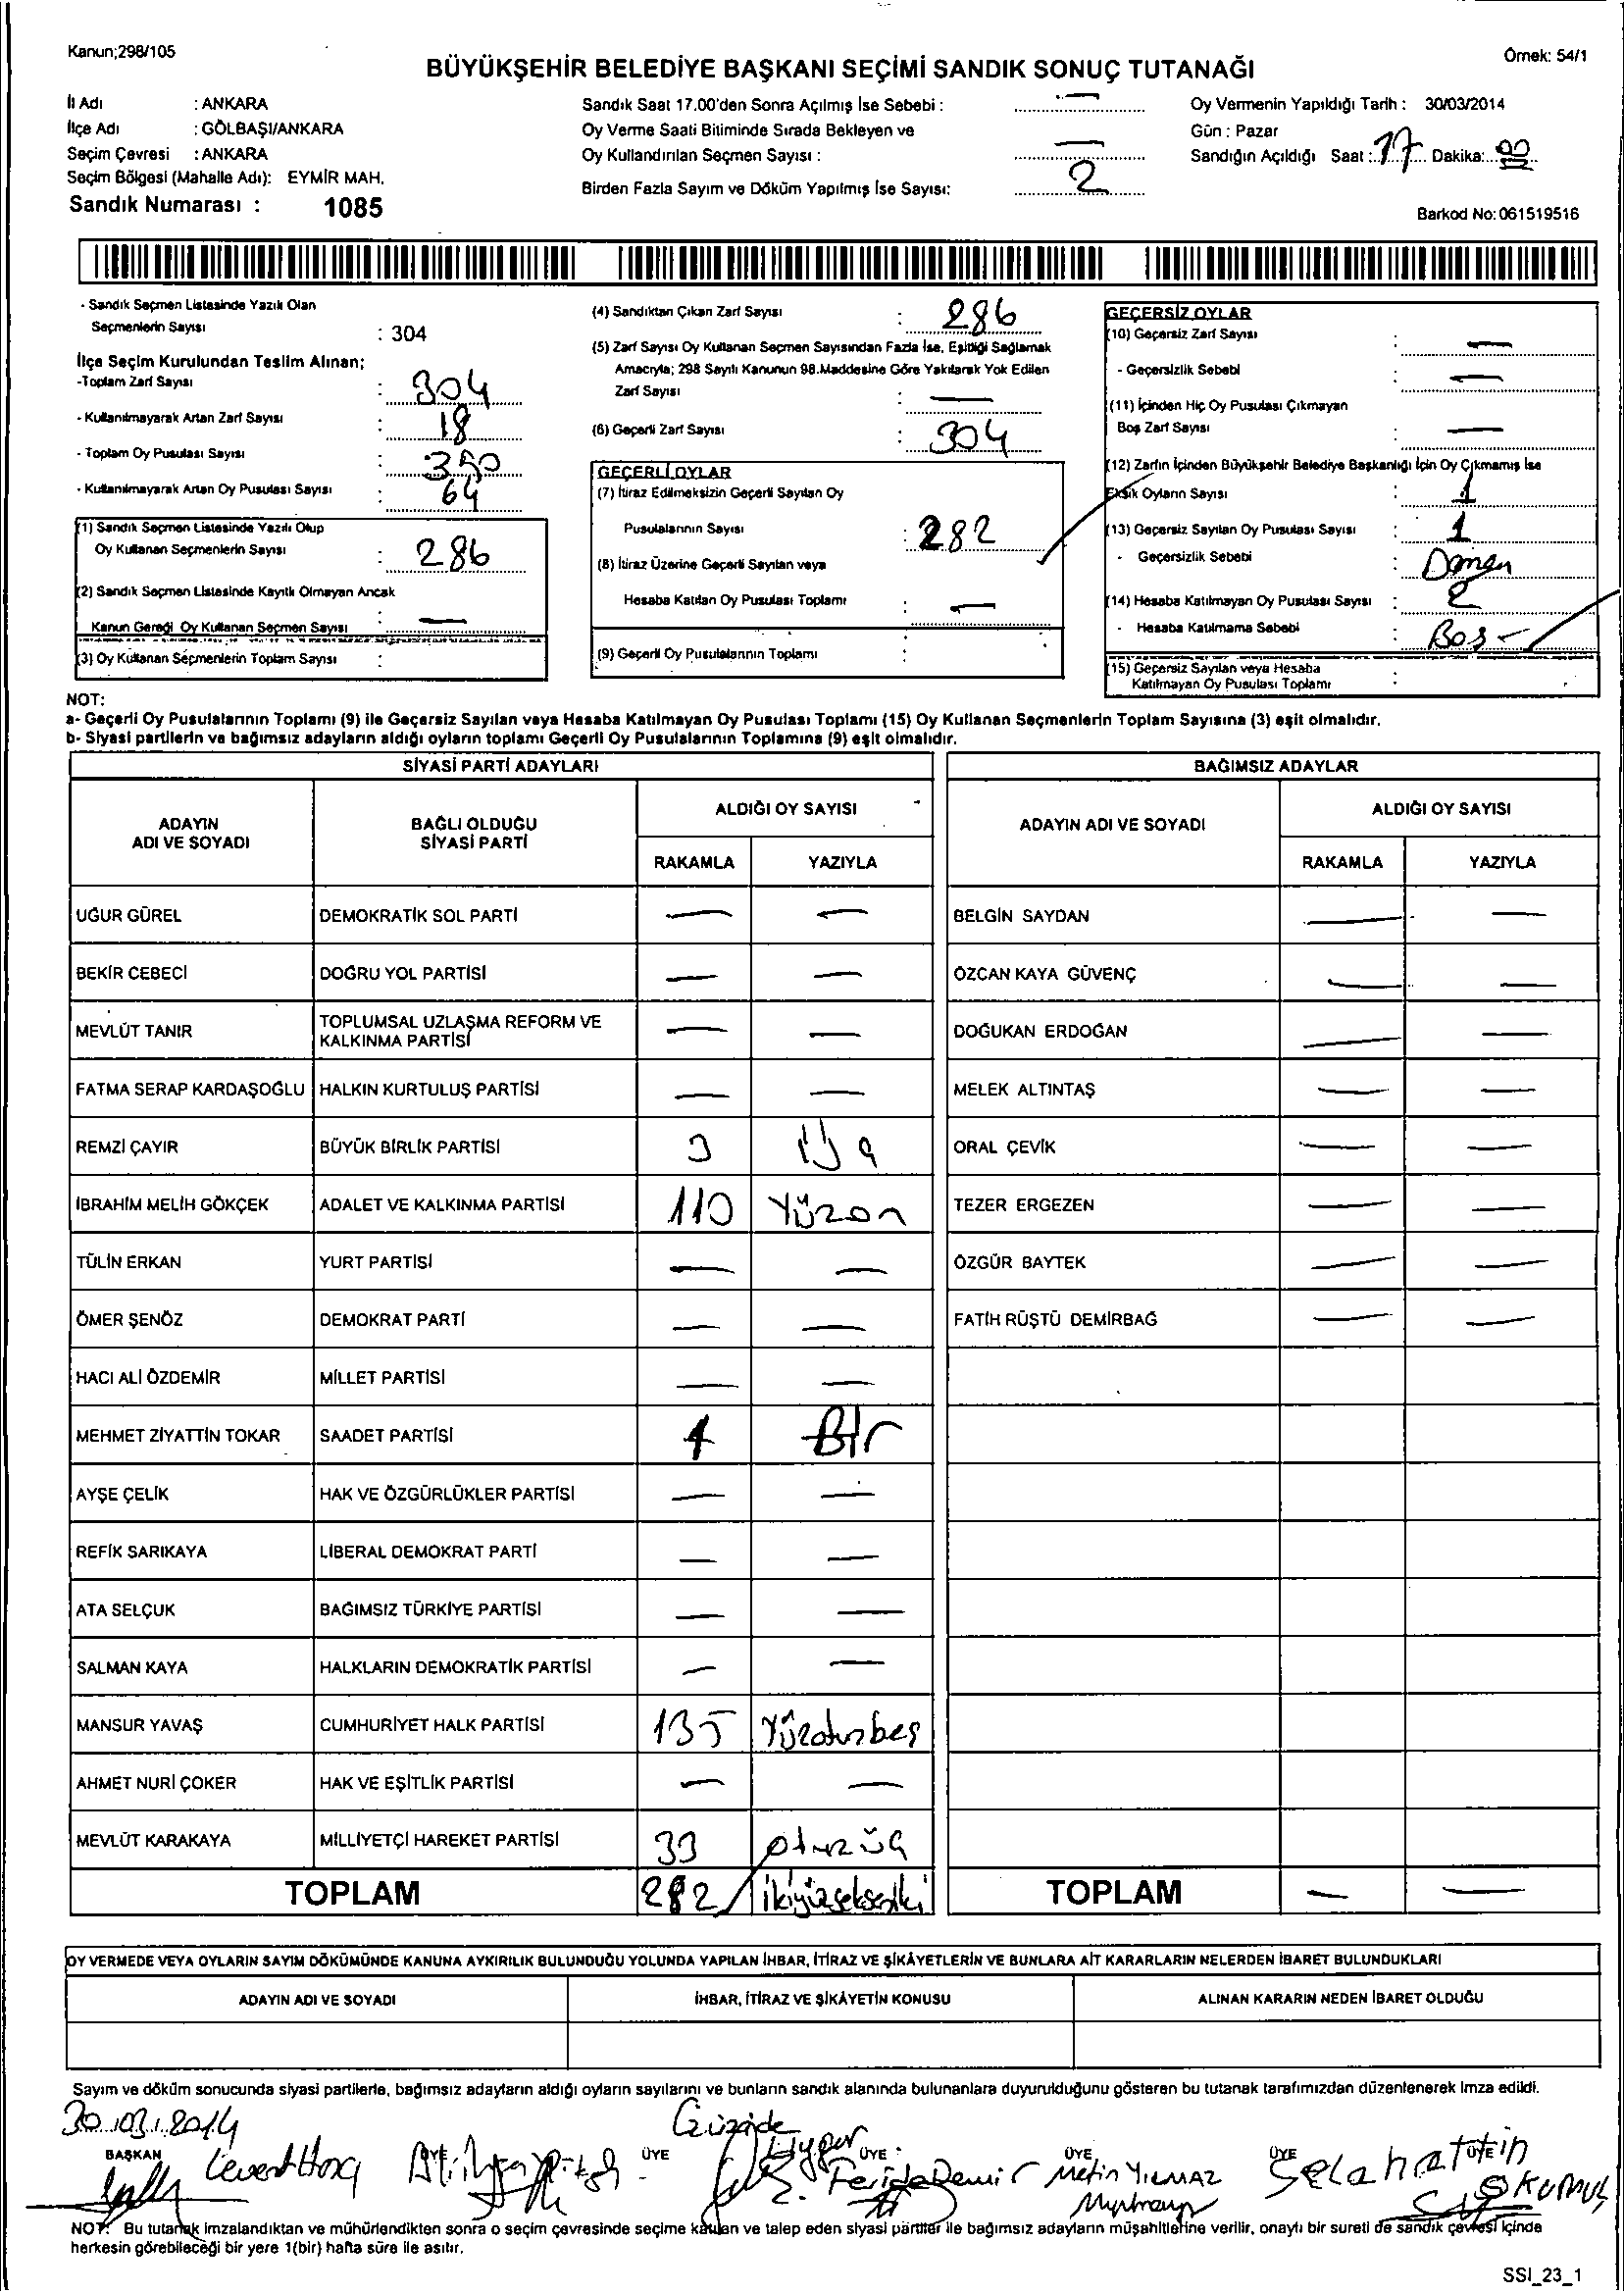 Kanun;298/105
Örnek: 54/1
BÜYÜKŞEHİR BELEDİYE BAŞKANI SEÇİMİ SANDIK SONUÇ TUTANAĞI
İl Adı : ANKARA
İlçe Adı : GÖLBAŞI/ANKARA
Seçim Çevresi : ANKARA
Seçim Bölgesi (Mahalle Adı): EYMİR MAH.
Sandık Numarası : 1085
Sandık Saat 17.00'den Sonra Açılmış İse Sebebi : —
Oy Verme Saati Bitiminde Sırada Bekleyen ve
Oy Kullandırılan Seçmen Sayısı : —
Birden Fazla Sayım ve Döküm Yapılmış İse Sayısı: 2
Oy Vermenin Yapıldığı Tarih : 30/03/2014
Gün : Pazar
Sandığın Açıldığı Saat : 17 Dakika: 00
Barkod No: 061519516
- Sandık Seçmen Listesinde Yazılı Olan
Seçmenlerin Sayısı : 304
İlçe Seçim Kurulundan Teslim Alınan;
-Toplam Zarf Sayısı : 304
- Kullanılmayarak Artan Zarf Sayısı : 18
- Toplam Oy Pusulası Sayısı : 350
- Kullanılmayarak Artan Oy Pusulası Sayısı : 64
(1) Sandık Seçmen Listesinde Yazılı Olup
Oy Kullanan Seçmenlerin Sayısı : 286
(2) Sandık Seçmen Listesinde Kayıtlı Olmayan Ancak
Kanun Gereği Oy Kullanan Seçmen Sayısı : —
(3) Oy Kullanan Seçmenlerin Toplam Sayısı :
(4) Sandıktan Çıkan Zarf Sayısı : 286
(5) Zarf Sayısı Oy Kullanan Seçmen Sayısından Fazla İse, Eşitliği Sağlamak
Amacıyla; 298 Sayılı Kanunun 98.Maddesine Göre Yakılarak Yok Edilen
Zarf Sayısı : —
(6) Geçerli Zarf Sayısı : 304
GEÇERLİ OYLAR
(7) İtiraz Edilmeksizin Geçerli Sayılan Oy
Pusulalarının Sayısı : 282
(8) İtiraz Üzerine Geçerli Sayılan veya
Hesaba Katılan Oy Pusulası Toplamı : —
(9) Geçerli Oy Pusulalarının Toplamı :
GEÇERSİZ OYLAR
(10) Geçersiz Zarf Sayısı : —
- Geçersizlik Sebebi : —
(11) İçinden Hiç Oy Pusulası Çıkmayan
Boş Zarf Sayısı : —
(12) Zarfın İçinden Büyükşehir Belediye Başkanlığı İçin Oy Çıkmamış İse
Eksik Oyların Sayısı : 1
(13) Geçersiz Sayılan Oy Pusulası Sayısı : 1
- Geçersizlik Sebebi :
(14) Hesaba Katılmayan Oy Pusulası Sayısı : 2
- Hesaba Katılmama Sebebi : Boş -
(15) Geçersiz Sayılan veya Hesaba
Katılmayan Oy Pusulası Toplamı :
NOT:
a- Geçerli Oy Pusulalarının Toplamı (9) ile Geçersiz Sayılan veya Hesaba Katılmayan Oy Pusulası Toplamı (15) Oy Kullanan Seçmenlerin Toplam Sayısına (3) eşit olmalıdır.
b- Siyasi partilerin ve bağımsız adayların aldığı oyların toplamı Geçerli Oy Pusulalarının Toplamına (9) eşit olmalıdır.
SİYASİ PARTİ ADAYLARI
ADAYIN ADI VE SOYADI BAĞLI OLDUĞU SİYASİ PARTİ ALDIĞI OY SAYISI
RAKAMLA YAZIYLA
UĞUR GÜREL DEMOKRATİK SOL PARTİ — —
BEKİR CEBECİ DOĞRU YOL PARTİSİ — —
MEVLÜT TANIR TOPLUMSAL UZLAŞMA REFORM VE KALKINMA PARTİSİ — —
FATMA SERAP KARDAŞOĞLU HALKIN KURTULUŞ PARTİSİ — —
REMZİ ÇAYIR BÜYÜK BİRLİK PARTİSİ 3 Üç
İBRAHİM MELİH GÖKÇEK ADALET VE KALKINMA PARTİSİ 110 Yüzon
TÜLİN ERKAN YURT PARTİSİ — —
ÖMER ŞENÖZ DEMOKRAT PARTİ — —
HACI ALİ ÖZDEMİR MİLLET PARTİSİ — —
MEHMET ZİYATTİN TOKAR SAADET PARTİSİ 1 Bir
AYŞE ÇELİK HAK VE ÖZGÜRLÜKLER PARTİSİ — —
REFİK SARIKAYA LİBERAL DEMOKRAT PARTİ — —
ATA SELÇUK BAĞIMSIZ TÜRKİYE PARTİSİ — —
SALMAN KAYA HALKLARIN DEMOKRATİK PARTİSİ — —
MANSUR YAVAŞ CUMHURİYET HALK PARTİSİ 135 Yüzotuzbeş
AHMET NURİ ÇOKER HAK VE EŞİTLİK PARTİSİ — —
MEVLÜT KARAKAYA MİLLİYETÇİ HAREKET PARTİSİ 33 otuzüç
TOPLAM 282 ikiyüzsekseniki
BAĞIMSIZ ADAYLAR
ADAYIN ADI VE SOYADI ALDIĞI OY SAYISI
RAKAMLA YAZIYLA
BELGİN SAYDAN — —
ÖZCAN KAYA GÜVENÇ — —
DOĞUKAN ERDOĞAN — —
MELEK ALTINTAŞ — —
ORAL ÇEVİK — —
TEZER ERGEZEN — —
ÖZGÜR BAYTEK — —
FATİH RÜŞTÜ DEMİRBAĞ — —
TOPLAM — —
OY VERMEDE VEYA OYLARIN SAYIM DÖKÜMÜNDE KANUNA AYKIRILIK BULUNDUĞU YOLUNDA YAPILAN İHBAR, İTİRAZ VE ŞİKÂYETLERİN VE BUNLARA AİT KARARLARIN NELERDEN İBARET BULUNDUKLARI
ADAYIN ADI VE SOYADI İHBAR, İTİRAZ VE ŞİKÂYETİN KONUSU ALINAN KARARIN NEDEN İBARET OLDUĞU
Sayım ve döküm sonucunda siyasi partilerle, bağımsız adayların aldığı oyların sayılarını ve bunların sandık alanında bulunanlara duyurulduğunu gösteren bu tutanak tarafımızdan düzenlenerek imza edildi.
30.03.2014
BAŞKAN ÜYE ÜYE ÜYE ÜYE ÜYE
Levent Güzide Feride Demir Metin YILMAZ Selahattin OKUMUŞ
NOT: Bu tutanak imzalandıktan ve mühürlendikten sonra o seçim çevresinde seçime katılan ve talep eden siyasi partiler ile bağımsız adayların müşahitlerine verilir, onaylı bir sureti de sandık çevresi içinde
herkesin görebileceği bir yere 1(bir) hafta süre ile asılır.
SSI_23_1